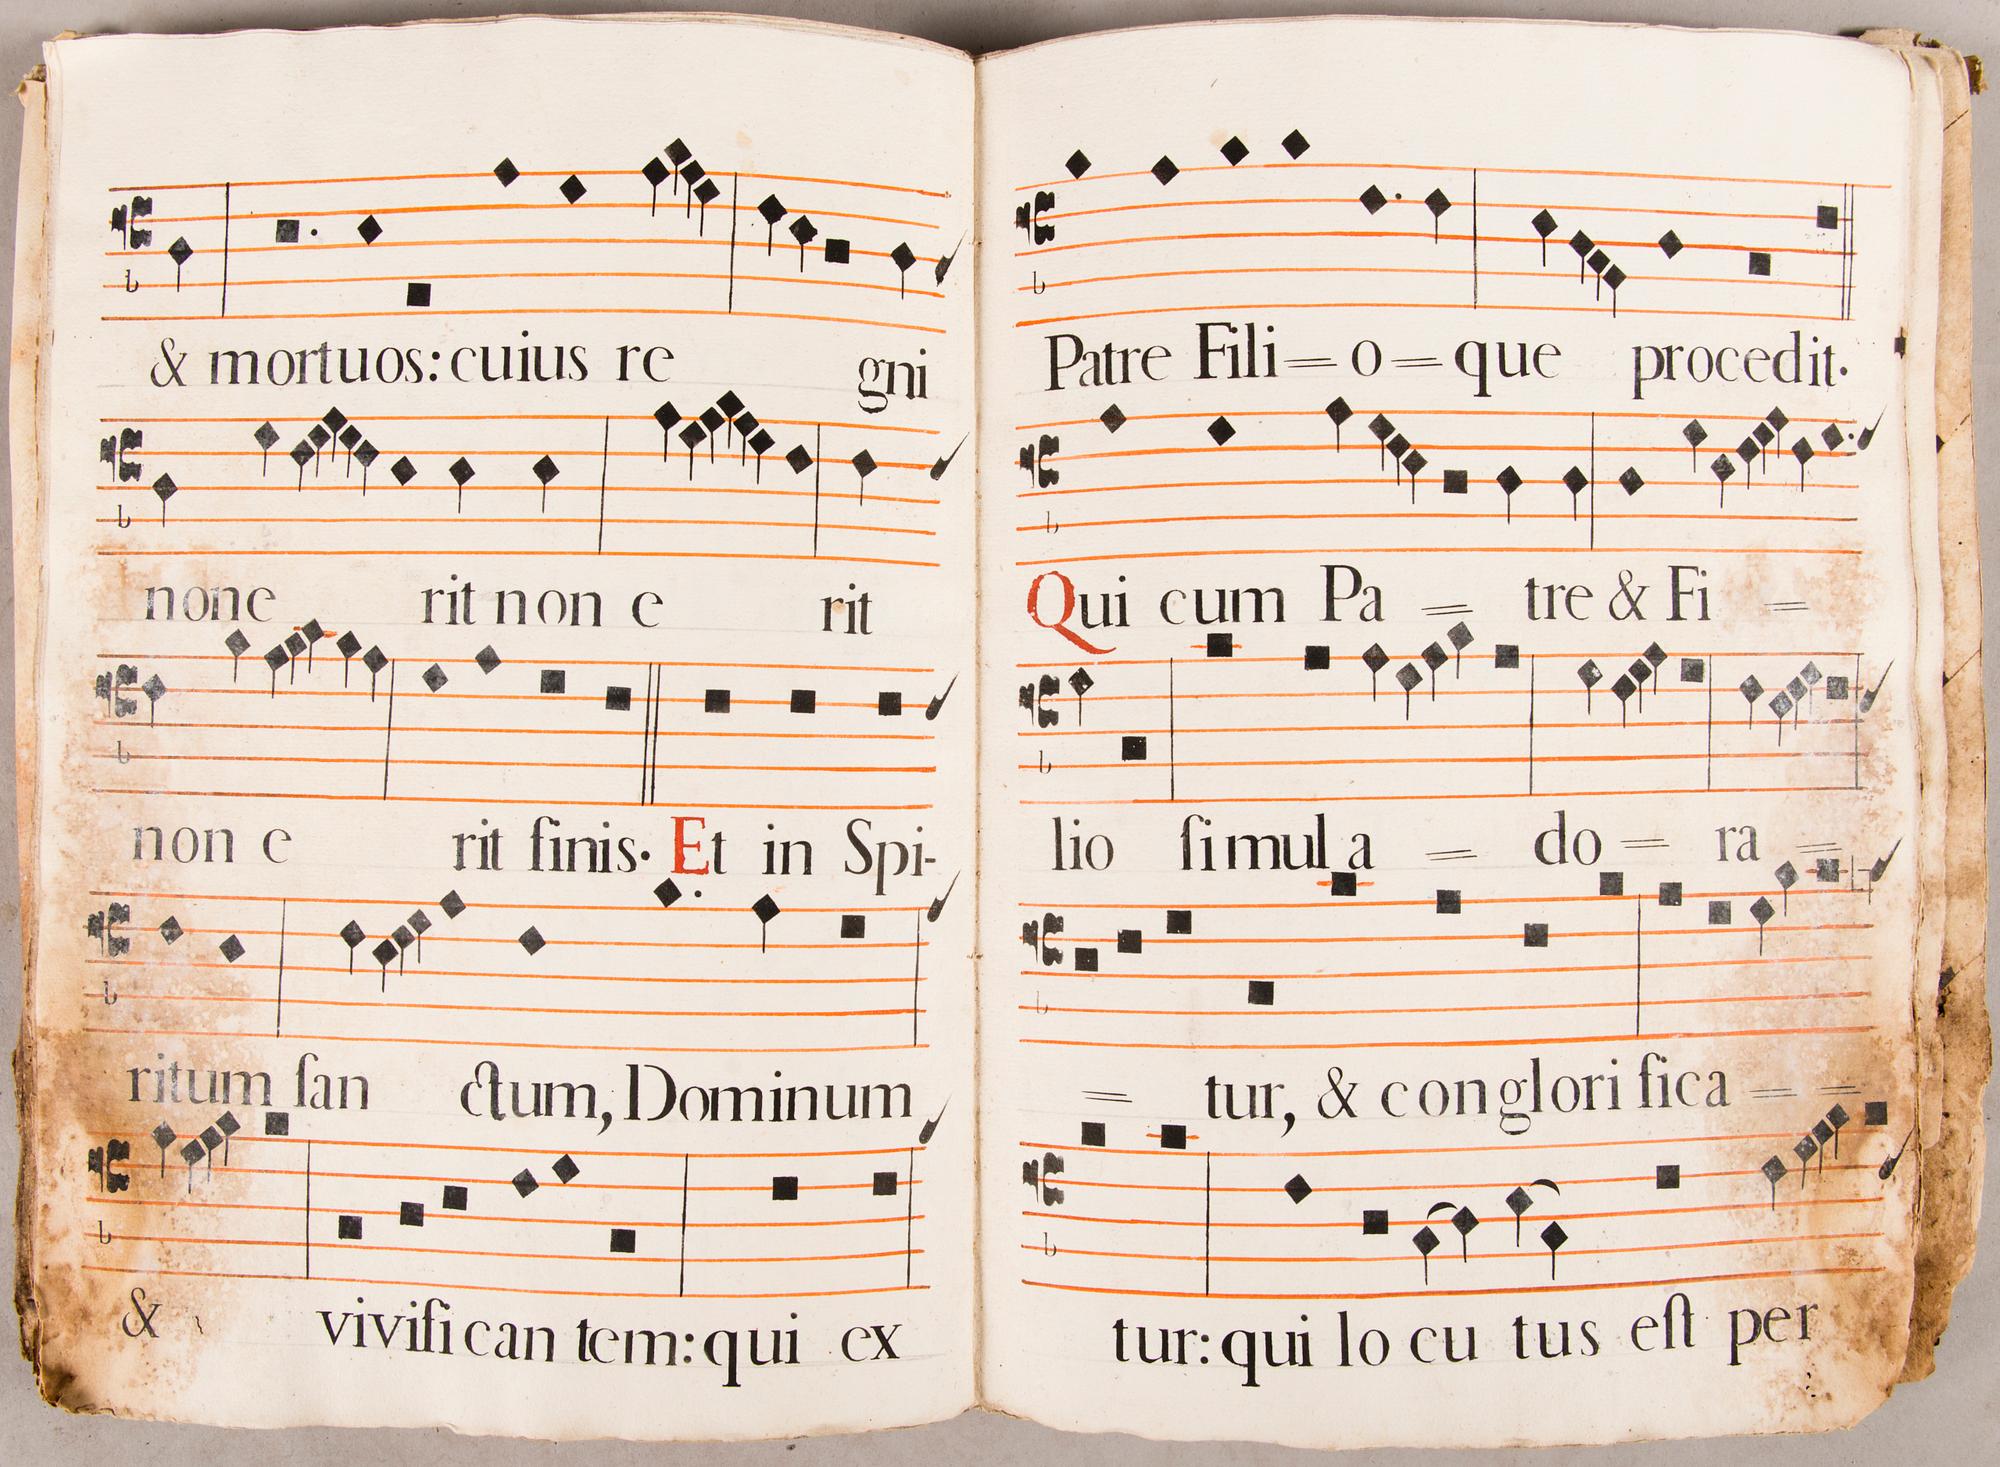 & mortuos: cuius re gni
none rit non e rit
non e rit finis. Et in Spi-
ritum ſan ctum, Dominum
& vivifi can tem: qui ex
Patre Fili=o=que procedit.
Qui cum Pa = tre & Fi =
lio ſimul a = do = ra =
= tur, & conglori fica = =
tur: qui lo cu tus eſt per